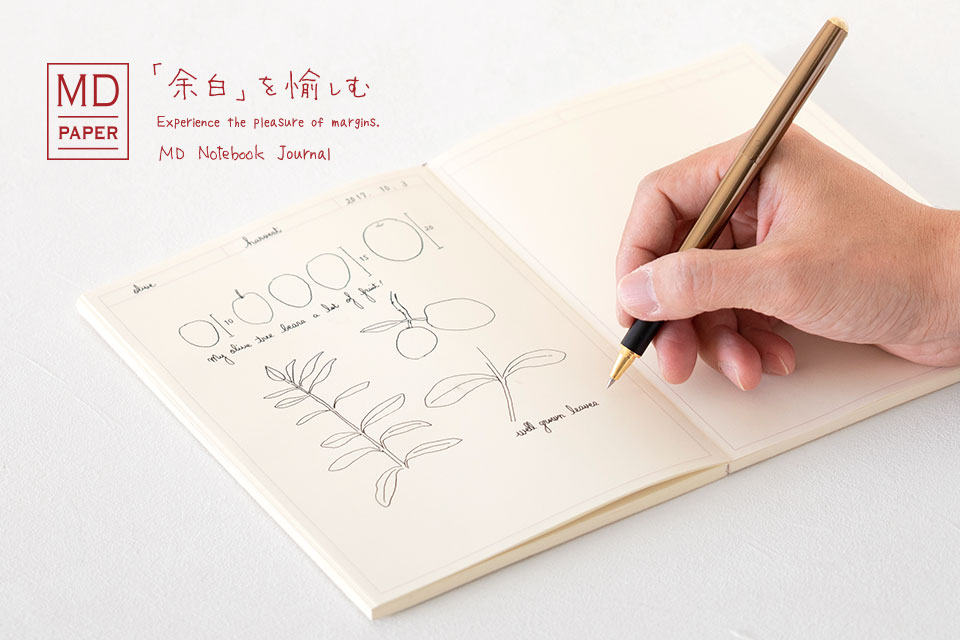 MD
PAPER
「余白」を愉しむ
Experience the pleasure of margins.
MD Notebook Journal
2017. 10. 3
harvest
olive
20
15
10
My olive tree bears a lot of fruit!
well grown leaves